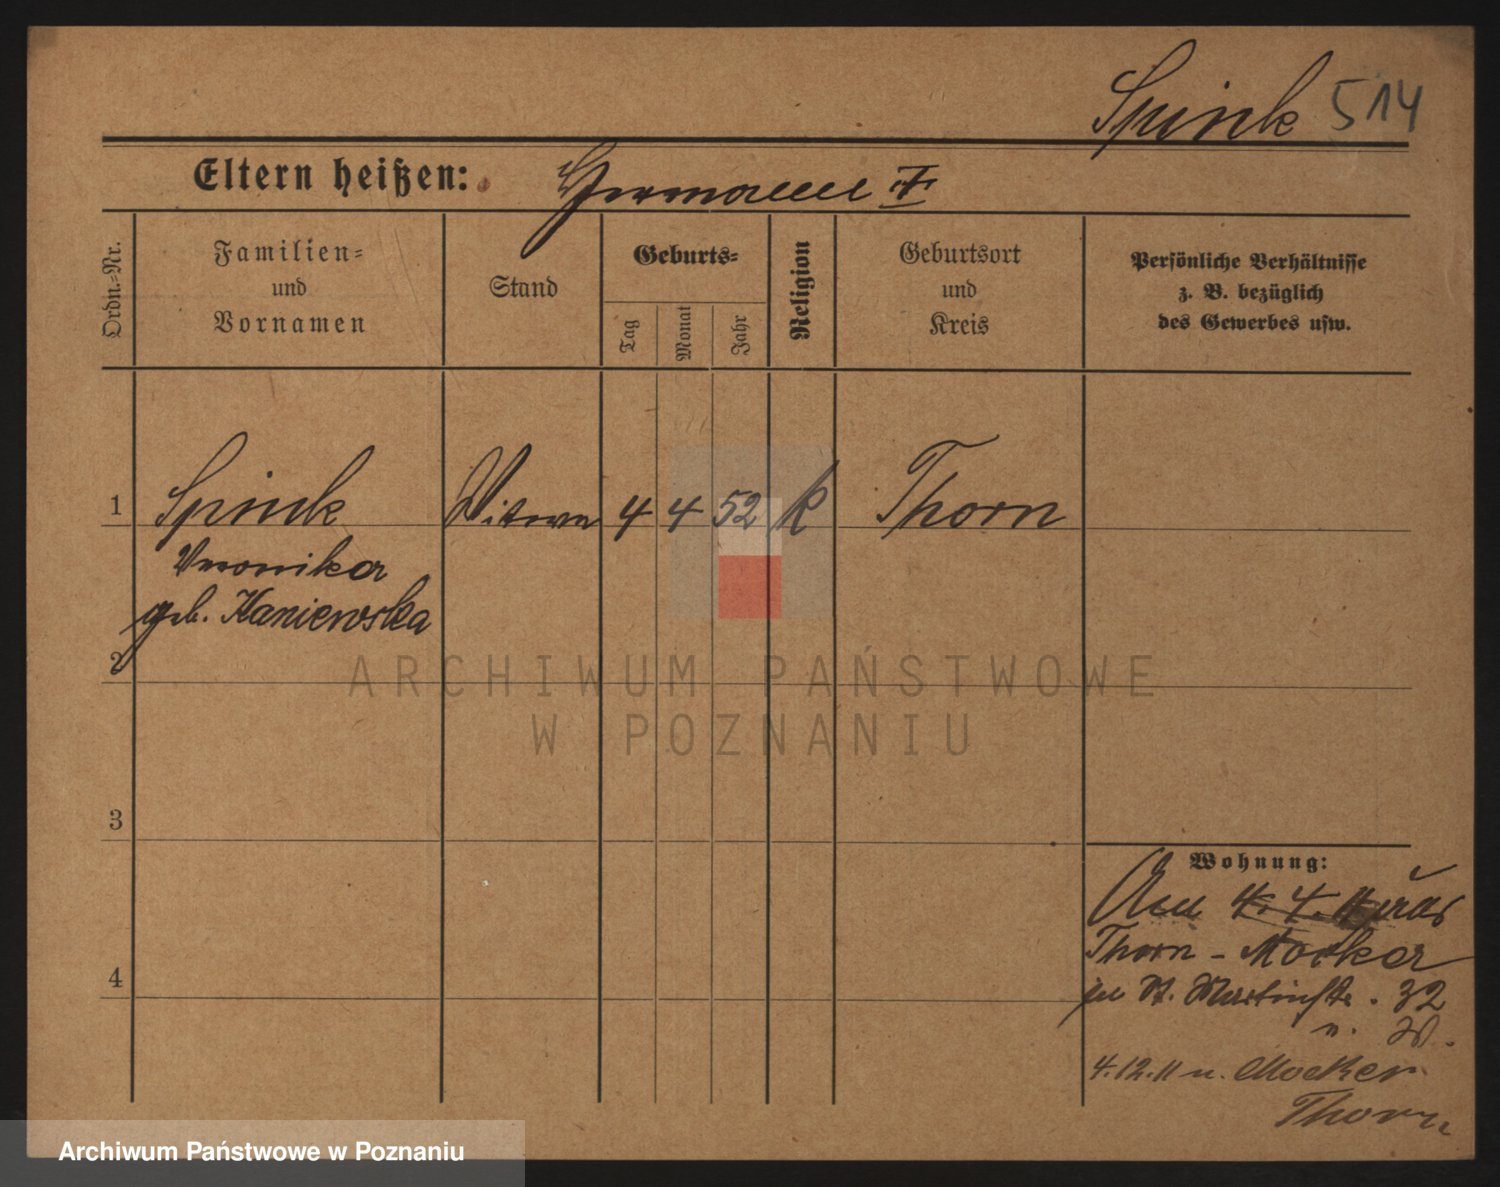 Spink 514
Eltern heißen: Hermann †
Ordn.-Nr.
Familien-
und
Vornamen
Stand
Geburts-
Tag
Monat
Jahr
Religion
Geburtsort
und
Kreis
Persönliche Verhältnisse
z. B. bezüglich
des Gewerbes usw.
1 Spink Witwe 4 4 52 k Thorn
Veronika
geb. Kaniewska
2
ARCHIWUM PAŃSTWOWE
W POZNANIU
3
Wohnung:
4. 4. 11
Thorn - Mocker
St. Martinstr. 32
4
4.12.11 n. Mocker
Thorn
Archiwum Państwowe w Poznaniu